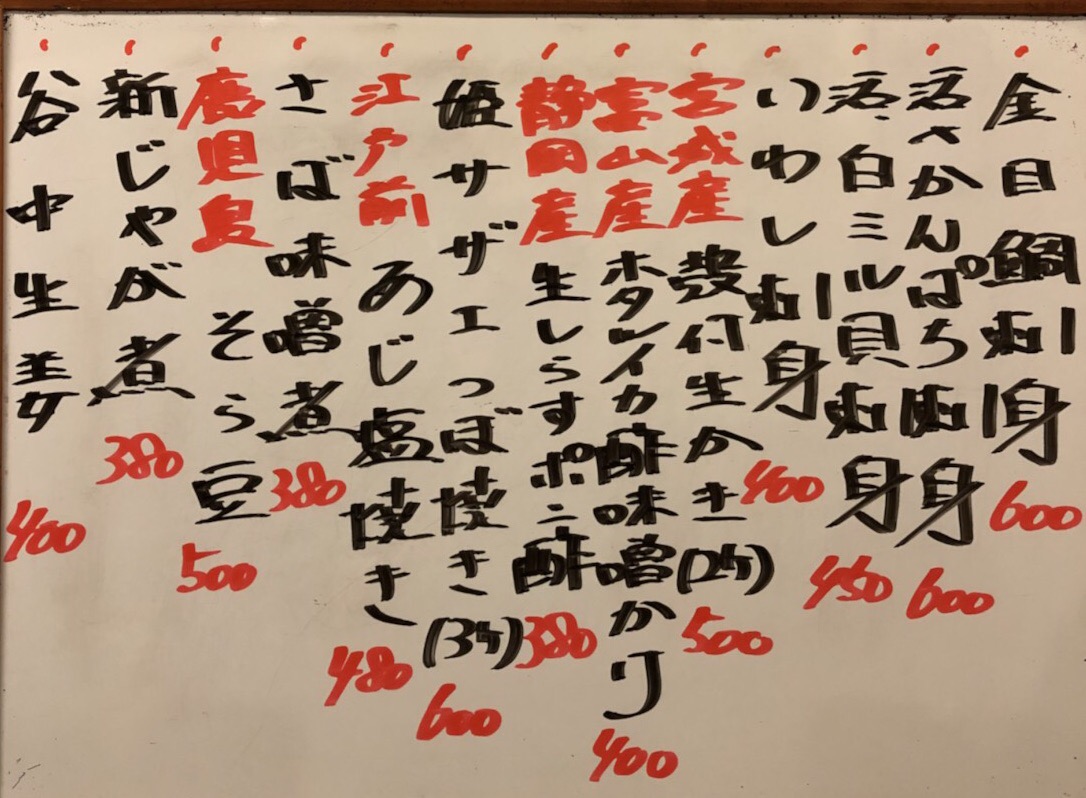 金目鯛刺身 600
活さかんぱち刺身 600
活白ミル貝刺身 450
いわし刺身 400
宮城産 殻付生かき(2ケ) 500
富山産 ホタルイカ酢味噌かけ 400
静岡産 生しらすポン酢 380
姫サザエつぼ焼き(3ケ) 600
江戸前 あじ塩焼き 480
さば味噌煮 380
鹿児島 そら豆 500
新じゃが煮 380
谷中生姜 400